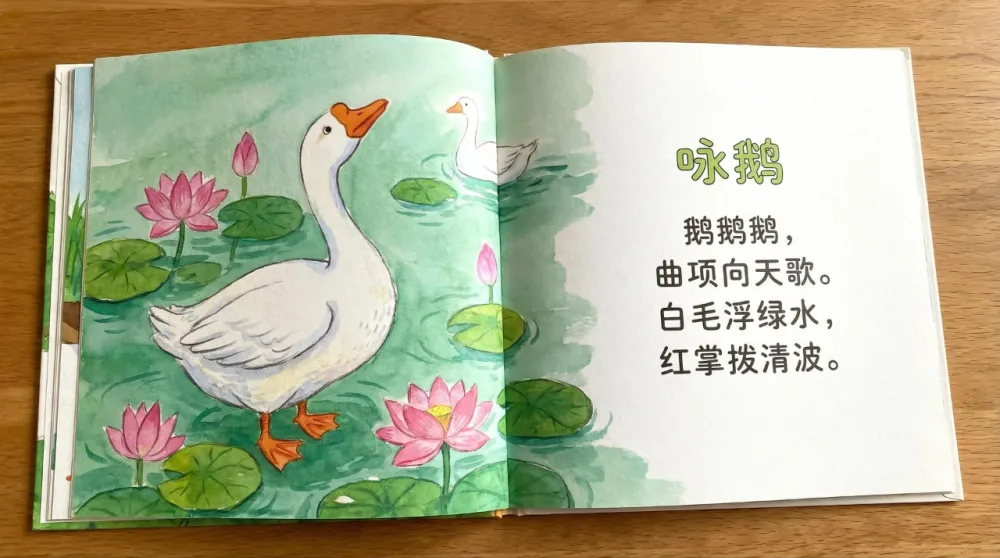 咏鹅
鹅鹅鹅，
曲项向天歌。
白毛浮绿水，
红掌拨清波。